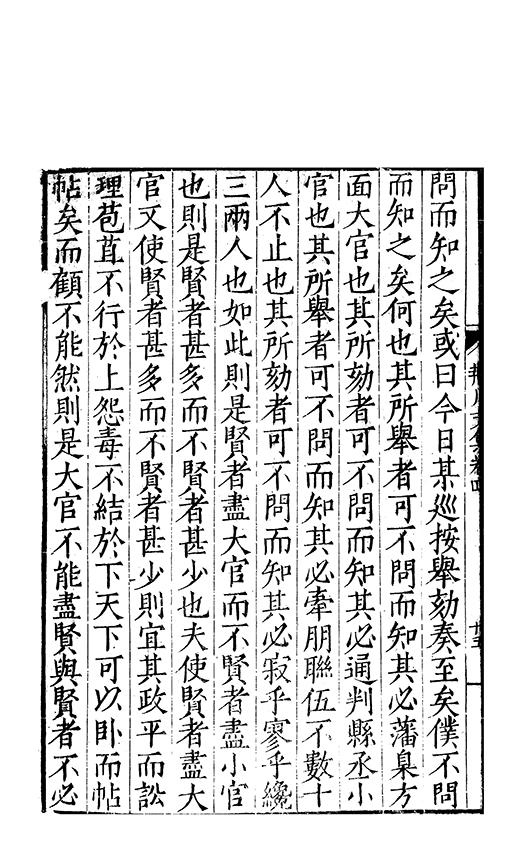 問而知之矣或曰今日某巡按舉劾奏至矣僕不問
而知之矣何也其所舉者可不問而知其必藩臬方
面大官也其所劾者可不問而知其必通判縣丞小
官也其所舉者可不問而知其必牽朋聯伍不數十
人不止也其所劾者可不問而知其必寂乎寥乎纔
三兩人也如此則是賢者盡大官而不賢者盡小官
也則是賢者甚多而不賢者甚少也夫使賢者盡大
官又使賢者甚多而不賢者甚少則宜其政平而訟
理苞苴不行於上怨毒不結於下天下可以卧而帖
帖矣而顧不能然則是大官不能盡賢與賢者不必